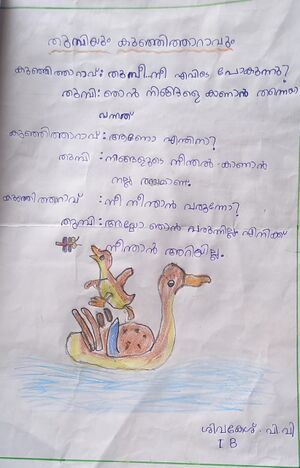 തുമ്പിയും കുഞ്ഞിത്താറാവും
കുഞ്ഞിത്താറാവ്: തുമ്പീ നീ എവിടെ പോകുന്നു?
തുമ്പി: ഞാൻ നിങ്ങളെ കാണാൻ തന്നെ
വന്നത്
കുഞ്ഞിത്താറാവ്: ആണോ എന്തിനാ?
തുമ്പി : നിങ്ങളുടെ നീന്തൽ കാണാൻ
നല്ല രസമാണ്.
കുഞ്ഞിത്താറാവ് : നീ നീന്താൻ വരുന്നോ?
തുമ്പി: അയ്യോ ഞാൻ വരുന്നില്ല എനിക്ക്
നീന്താൻ അറിയില്ല.
ശിവകേശ്. പി. വി
I B